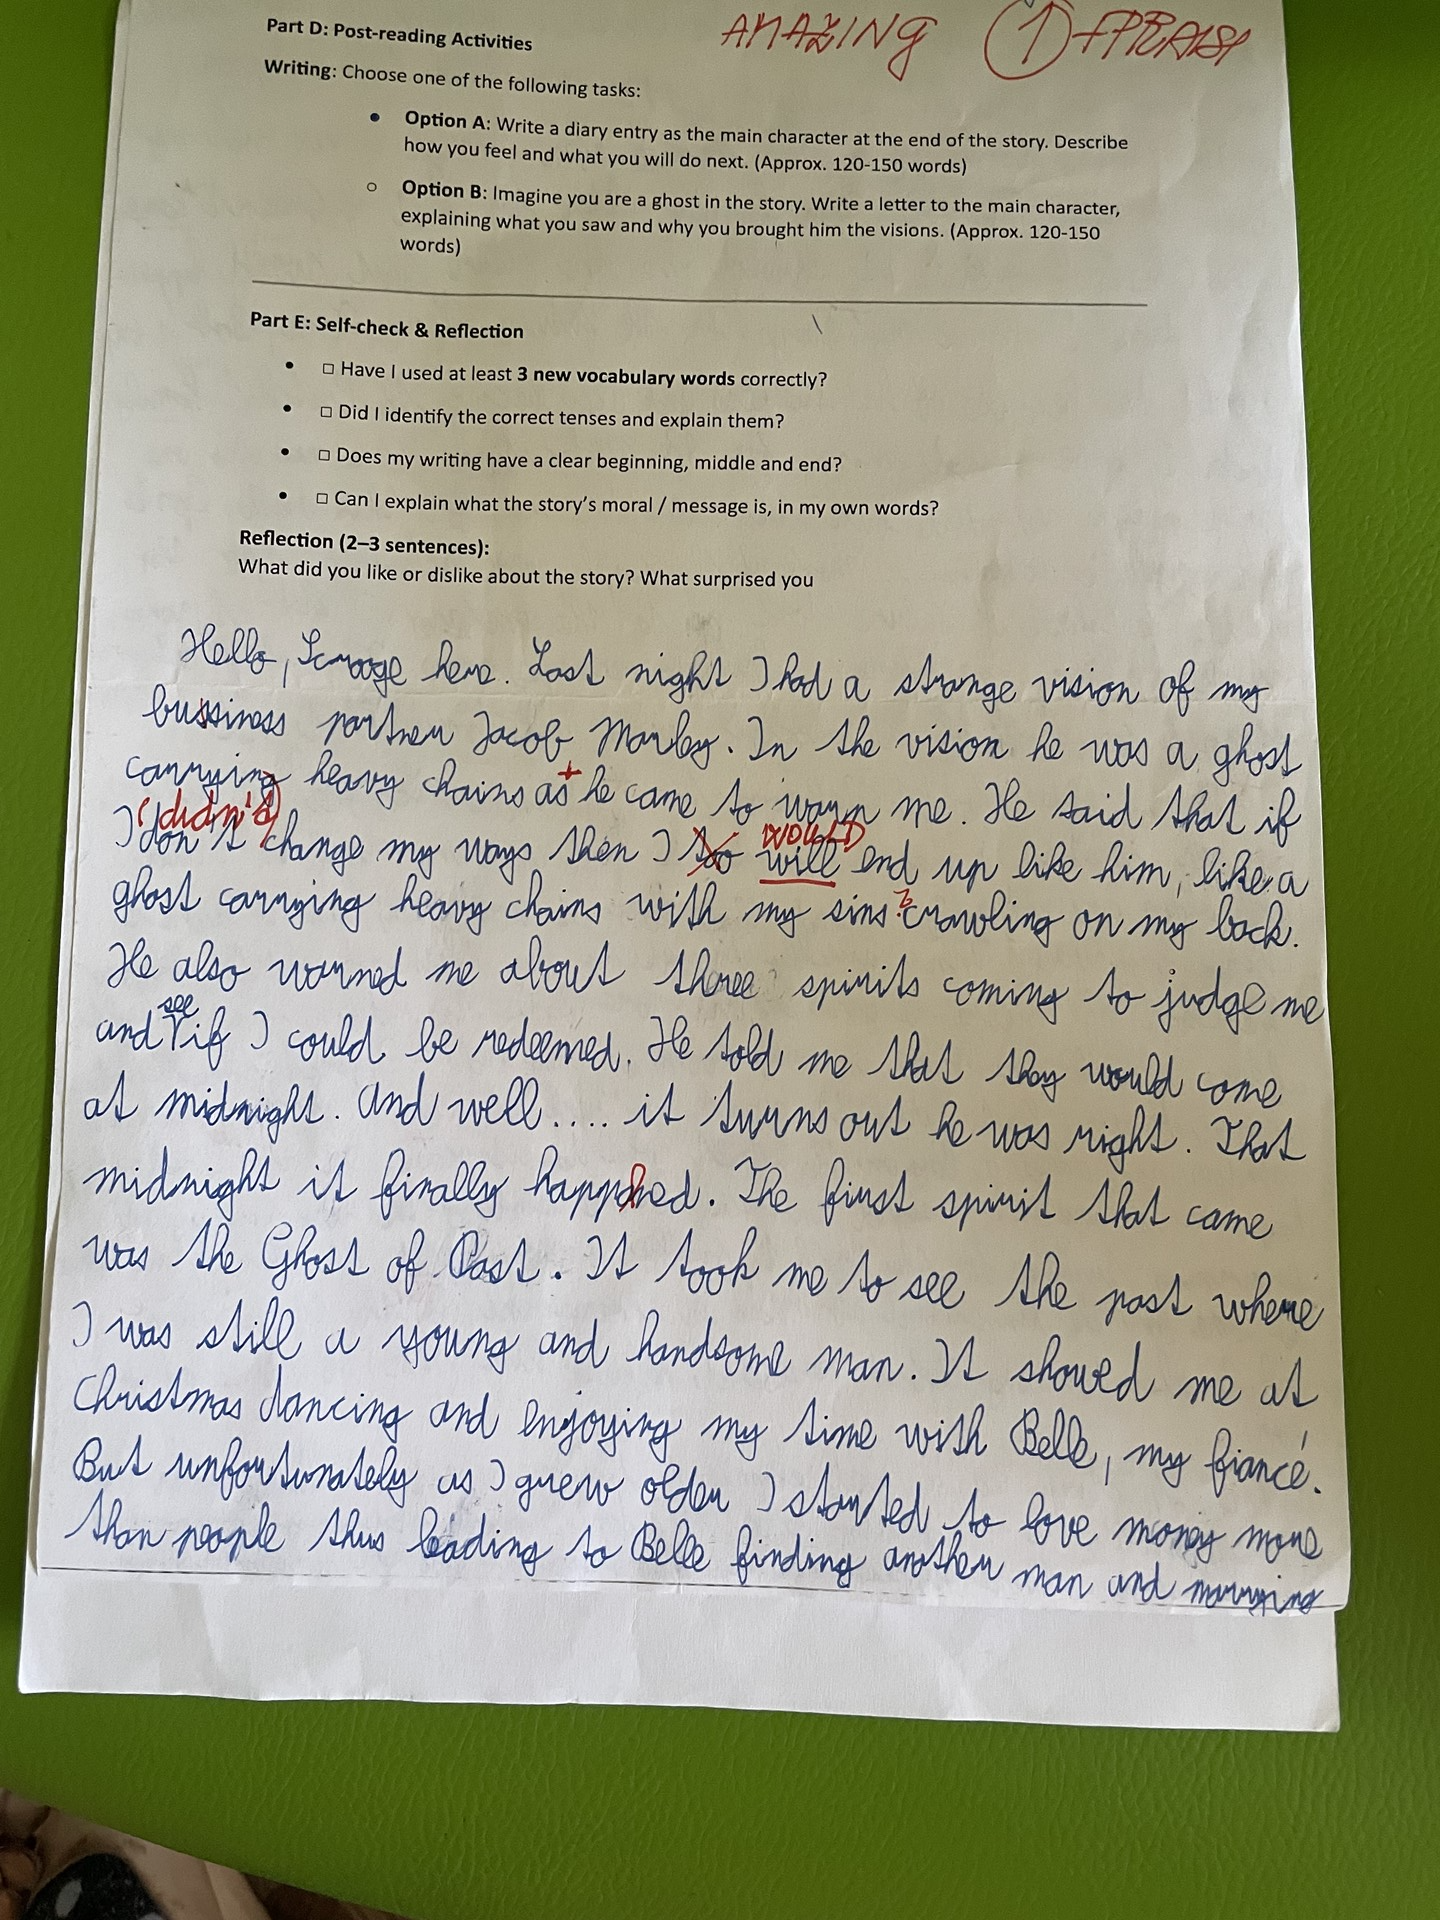 AMAZING 1 + PRAISE
Part D: Post-reading Activities
Writing: Choose one of the following tasks:
• Option A: Write a diary entry as the main character at the end of the story. Describe
how you feel and what you will do next. (Approx. 120-150 words)
○ Option B: Imagine you are a ghost in the story. Write a letter to the main character,
explaining what you saw and why you brought him the visions. (Approx. 120-150
words)
Part E: Self-check & Reflection
• □ Have I used at least 3 new vocabulary words correctly?
• □ Did I identify the correct tenses and explain them?
• □ Does my writing have a clear beginning, middle and end?
• □ Can I explain what the story's moral / message is, in my own words?
Reflection (2–3 sentences):
What did you like or dislike about the story? What surprised you
Hello, Scrooge here. Last night I had a strange vision of my
bussiness partner Jacob Marley. In the vision he was a ghost
carrying heavy chains as he came to warn me. He said that if
(didn't) WOULD
I don't change my ways then I will end up like him, like a
ghost carrying heavy chains with my sins ? crawling on my back.
He also warned me about three spirits coming to judge me
see
and if I could be redeemed. He told me that they would come
at midnight. And well.... it turns out he was right. That
midnight it finally happened. The first spirit that came
was the Ghost of Past. It took me to see the past where
I was still a young and handsome man. It showed me at
Christmas dancing and enjoying my time with Belle, my fiancé.
But unfortunately as I grew older I started to love money more
than people thus leading to Belle finding another man and marrying